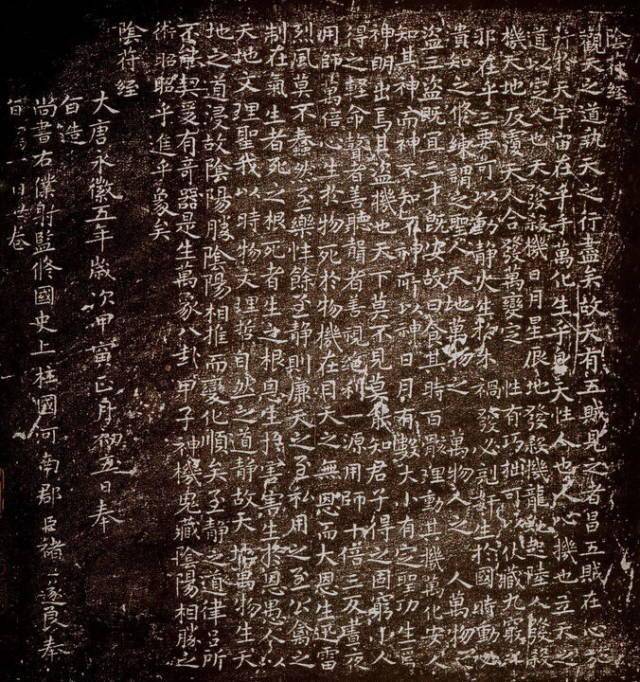 陰符经
觀天之道執天之行盡矣故天有五賊見之者昌五賊在心施
行於天宇宙在乎手萬化生乎身天性人也人心機也立天之
道以定人也天發殺機日月星辰地發殺機龍蛇起陸人發殺
機天地反覆天人合發萬變定性有巧拙可以伏藏九竅之
邪在乎三要可以動静火生於木禍發必剋姧生於國時動必
潰知之修練謂之聖人天地萬物之萬物人之人萬物之
盗三盗既宜三才既安故曰食其時百骸理動其機萬化安人
知其神而神不知不神所以神日月有數大小有定聖功生焉
神明出焉其盗機也天下莫不見莫能知君子得之固窮小人
得之輕命瞽者善聽聾者善視絶利一源用師十倍三反晝夜
用師萬倍心生於物死於物機在目天之無恩而大恩生迅雷
烈風莫不蠢然至樂性餘至静則廉天之至私用之至公禽之
制在氣生者死之根死者生之根恩生於害害生於恩愚人以
天地文理聖我以時物文理哲自然之道静故天地萬物生天
地之道浸故陰陽勝陰陽相推而變化順矣至静之道律吕所
不能契爰有奇器是生萬象八卦甲子神機鬼藏陰陽相勝之
術昭昭乎進乎象矣
陰符经
大唐永徽五年歲次甲寅正月初五日奉
旨造
尚書右僕射監修國史上柱國河南郡臣褚遂良奉
旨寫一百卷